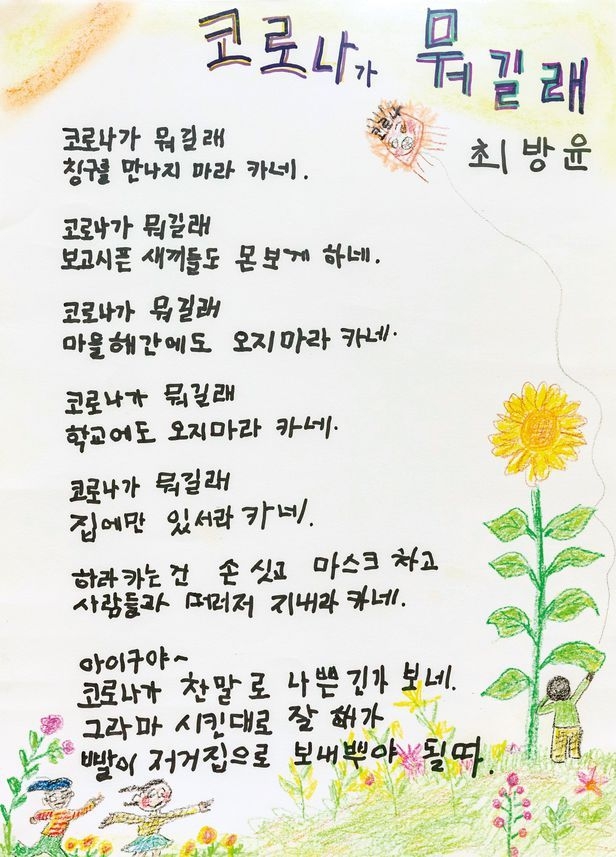 코로나가 뭐길래
최방윤
코로나
코로나가 뭐길래
칭구를 만나지 마라 카네.
코로나가 뭐길래
보고시픈 새끼들도 몬보게 하네.
코로나가 뭐길래
마을해간에도 오지마라 카네.
코로나가 뭐길래
학교에도 오지마라 카네.
코로나가 뭐길래
집에만 있서라 카네.
하라카는건 손 싯고 마스크 차고
사람들과 떠러저 지내라 카네.
아이구야~
코로나가 찬말로 나쁜긴가 보네.
그라마 시킨대로 잘 해가
빨이 저거집으로 보내뿌야 될따.